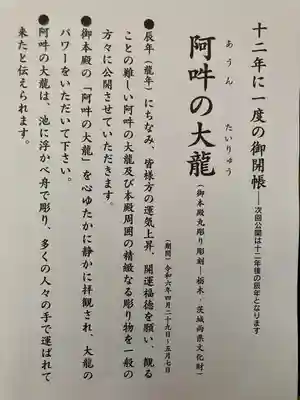 十二年に一度の御開帳―次回公開は十二年後の辰年となります
あうん たいりゅう
阿吽の大龍
(御本殿丸彫り彫刻―栃木・茨城両県文化財)
(期間)令和六年四月二十九日~五月七日
●辰年(龍年)にちなみ、皆様方の運気上昇、開運福徳を願い、観る
ことの難しい阿吽の大龍及び本殿周囲の精緻なる彫り物を一般の
方々に公開させていただきます。
●御本殿の「阿吽の大龍」を心ゆたかに静かに拝観され、大龍の
パワーをいただいて下さい。
●阿吽の大龍は、池に浮かべ舟で彫り、多くの人々の手で運ばれて
来たと伝えられます。